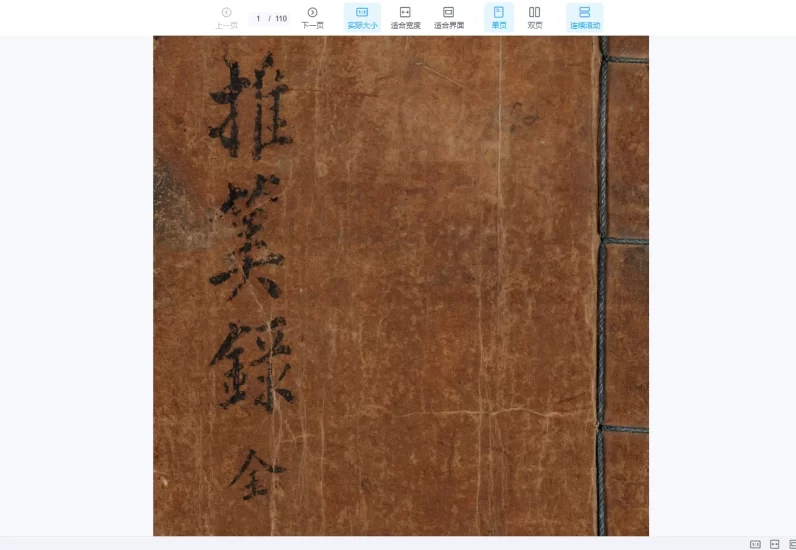 上一页
1 / 110
下一页
实际大小
适合宽度
适合界面
单页
双页
连续滚动
推筭錄
全